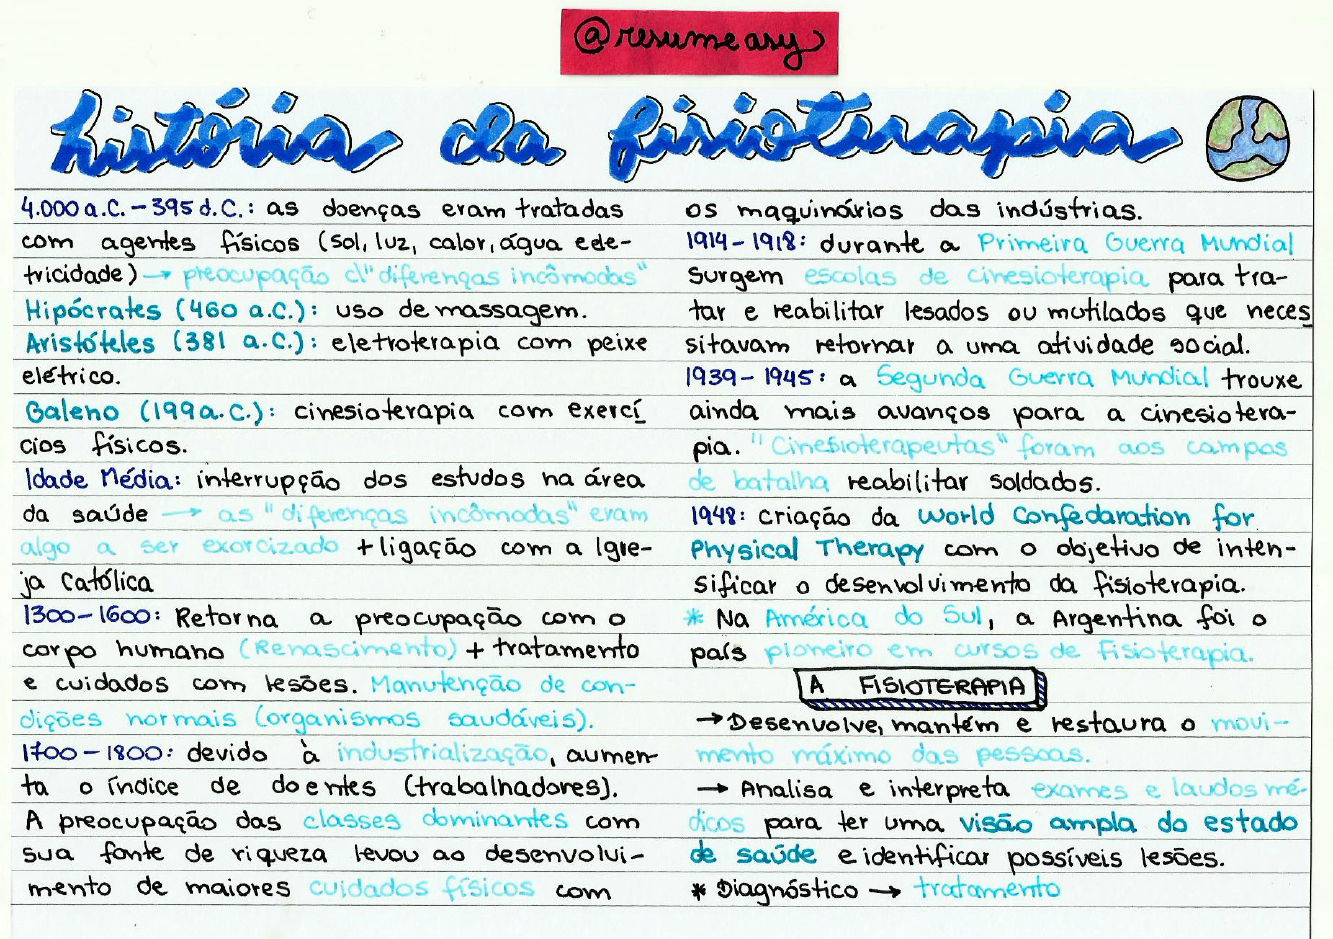 @resumeasy
história da fisioterapia
4.000 a.C. – 395 d.C.: as doenças eram tratadas
com agentes físicos (sol, luz, calor, água e ele-
tricidade) → preocupação c\ "diferenças incômodas"
Hipócrates (460 a.C.): uso de massagem.
Aristóteles (381 a.C.): eletroterapia com peixe
elétrico.
Galeno (199 a.C.): cinesioterapia com exercí
cios físicos.
Idade Média: interrupção dos estudos na área
da saúde → as "diferenças incômodas" eram
algo a ser exorcizado + ligação com a Igre-
ja Católica
1300 – 1600: Retorna a preocupação com o
corpo humano (Renascimento) + tratamento
e cuidados com lesões. Manutenção de con-
dições normais (organismos saudáveis).
1700 – 1800: devido à industrialização, aumen-
ta o índice de doentes (trabalhadores).
A preocupação das classes dominantes com
sua fonte de riqueza levou ao desenvolvi-
mento de maiores cuidados físicos com
os maquinários das indústrias.
1914 – 1918: durante a Primeira Guerra Mundial
surgem escolas de cinesioterapia para tra-
tar e reabilitar lesados ou mutilados que neces
sitavam retornar a uma atividade social.
1939 – 1945: a Segunda Guerra Mundial trouxe
ainda mais avanços para a cinesiotera-
pia. "Cinesioterapeutas" foram aos campos
de batalha reabilitar soldados.
1948: criação da World Confedaration for
Physical Therapy com o objetivo de inten-
sificar o desenvolvimento da fisioterapia.
* Na América do Sul, a Argentina foi o
país pioneiro em cursos de Fisioterapia.
A FISIOTERAPIA
→ Desenvolve, mantém e restaura o movi-
mento máximo das pessoas.
→ Analisa e interpreta exames e laudos mé-
dicos para ter uma visão ampla do estado
de saúde e identificar possíveis lesões.
* Diagnóstico → tratamento